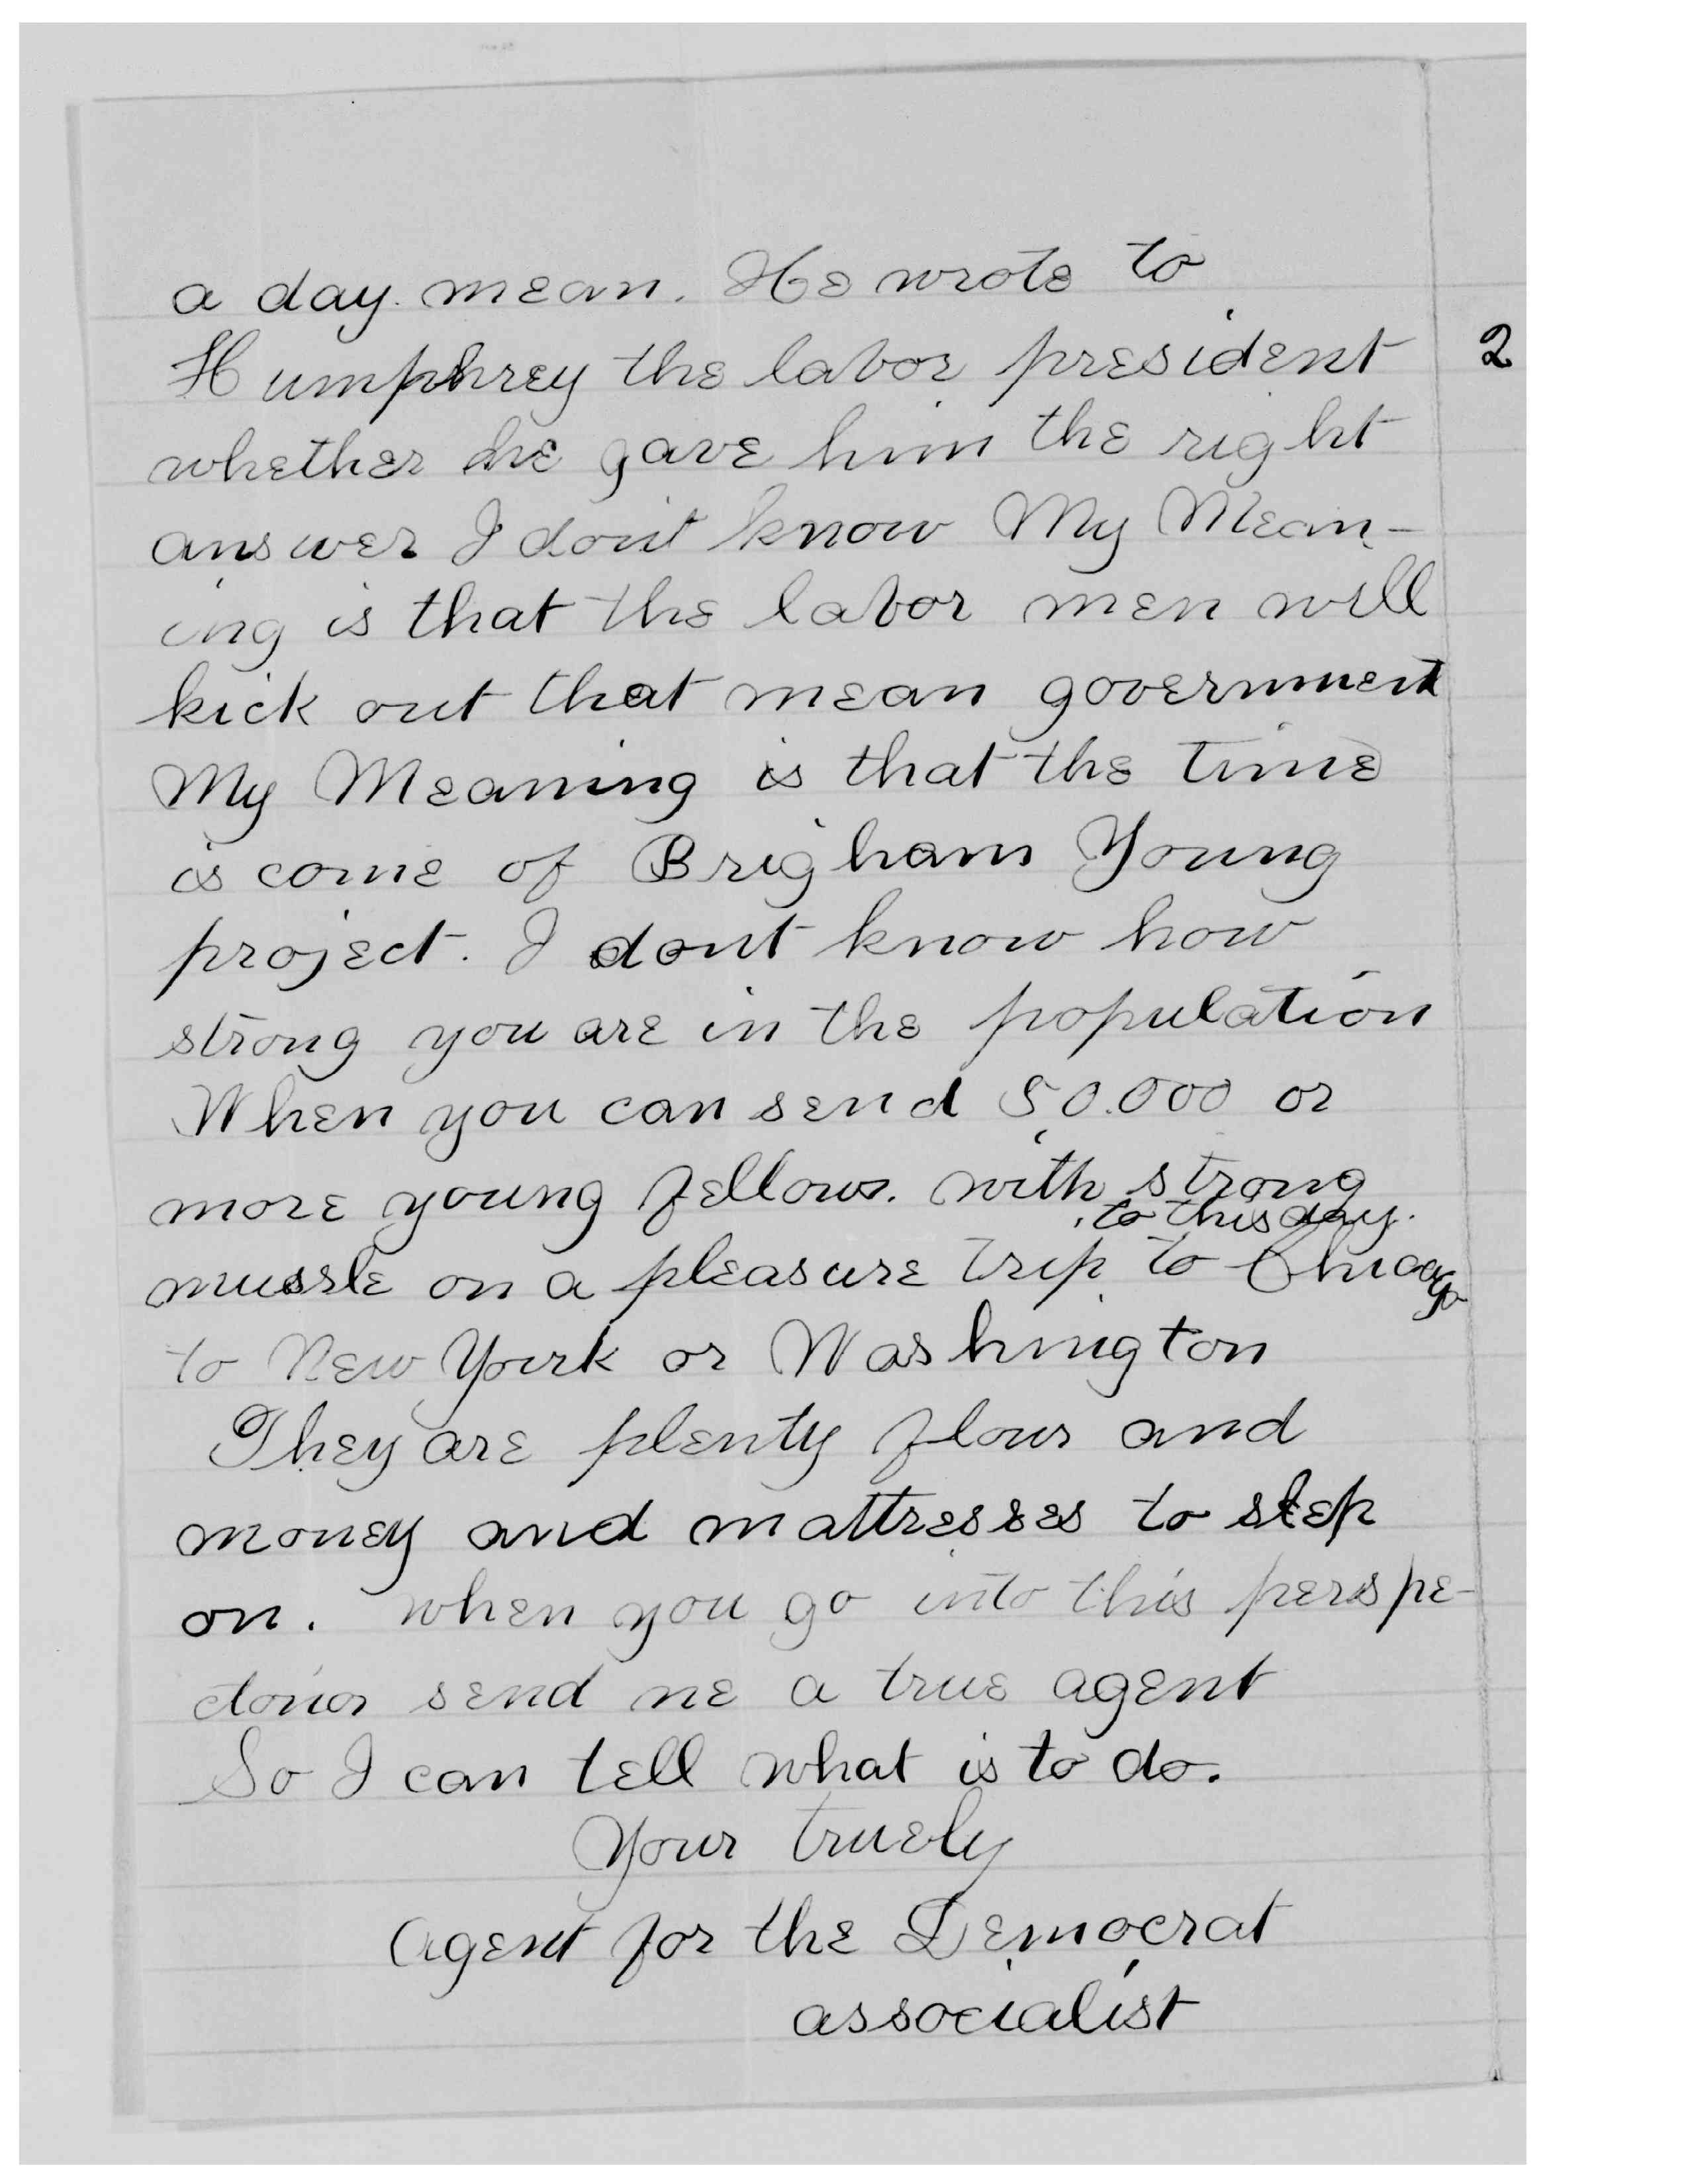 a day. mean. He wrote to
Humphrey the labor president
2
whether he gave him the right
answer I dont know My Mean-
ing is that the labor men will
kick out that mean government
My Meaning is that the time
is come of Brigham Young
project. I dont know how
strong you are in the population
When you can send 50.000 or
more young fellows. with strong
to this day.
mussle on a pleasure trip to Chicago
to New Yourk or Washington
They are plenty flour and
money and mattresses to slep
on. when you go into this perspe-
send me a true agent
So I can tell what is to do.
Your truely
Agent for the Democrat
associalist